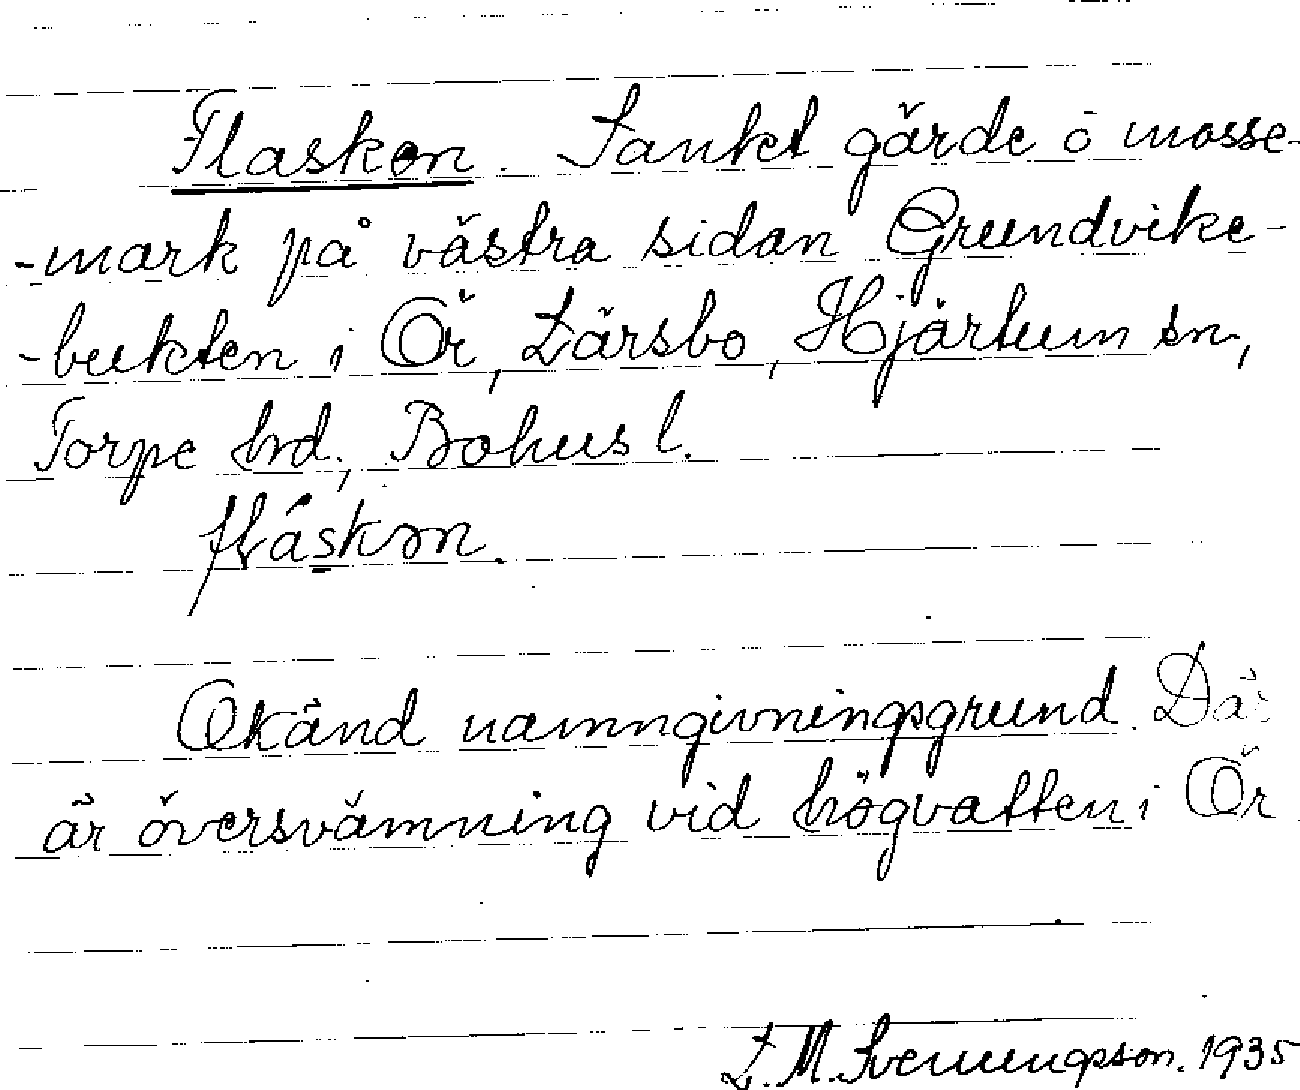 Flasken. Sankt gärde ö mosse-
-mark på västra sidan Grundvike-
-bukten i Ör, Lärsbo, Hjärtum sn,
Torpe hrd., Bohus l.
fláskən.
Okänd namngivningsgrund. Där
är översvämning vid högvatten i Ör
L. M. Svenungson. 1935